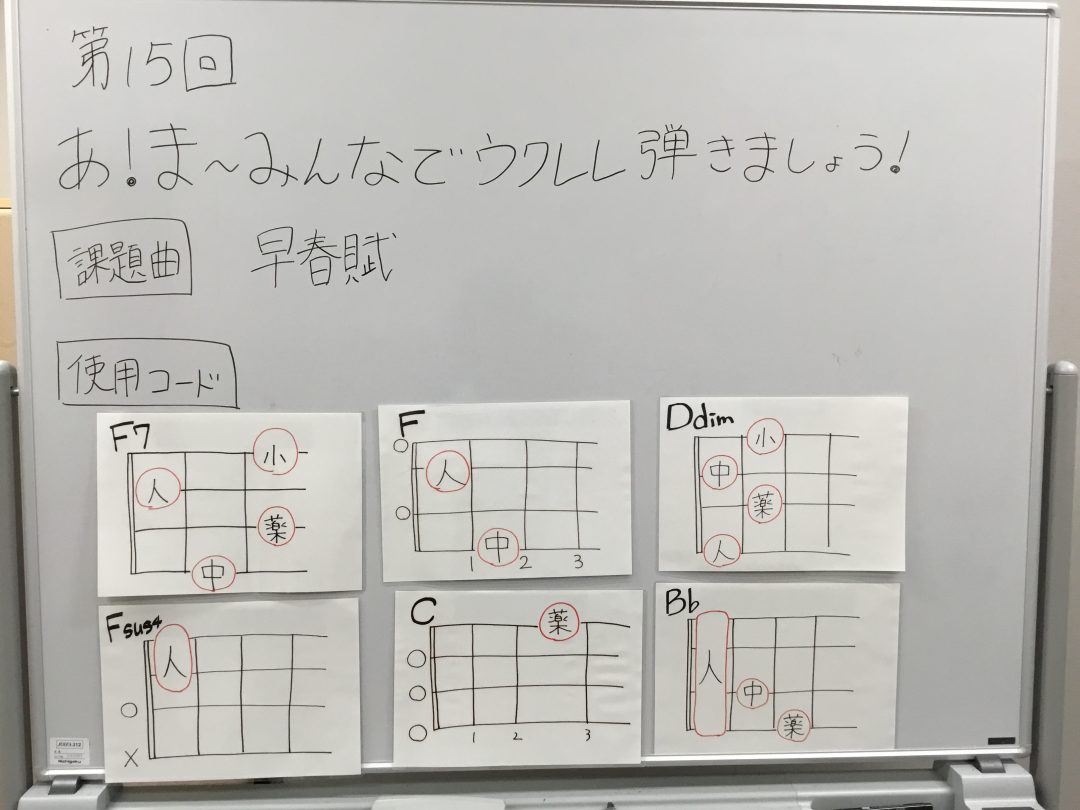 第15回
あ!ま〜みんなでウクレレ弾きましょう!
課題曲 早春賦
使用コード
F7
小
人
薬
中
F
人
中
1 2 3
Ddim
小
中
薬
人
Fsus4
人
X
C
薬
1 2 3
Bb
人
中
薬